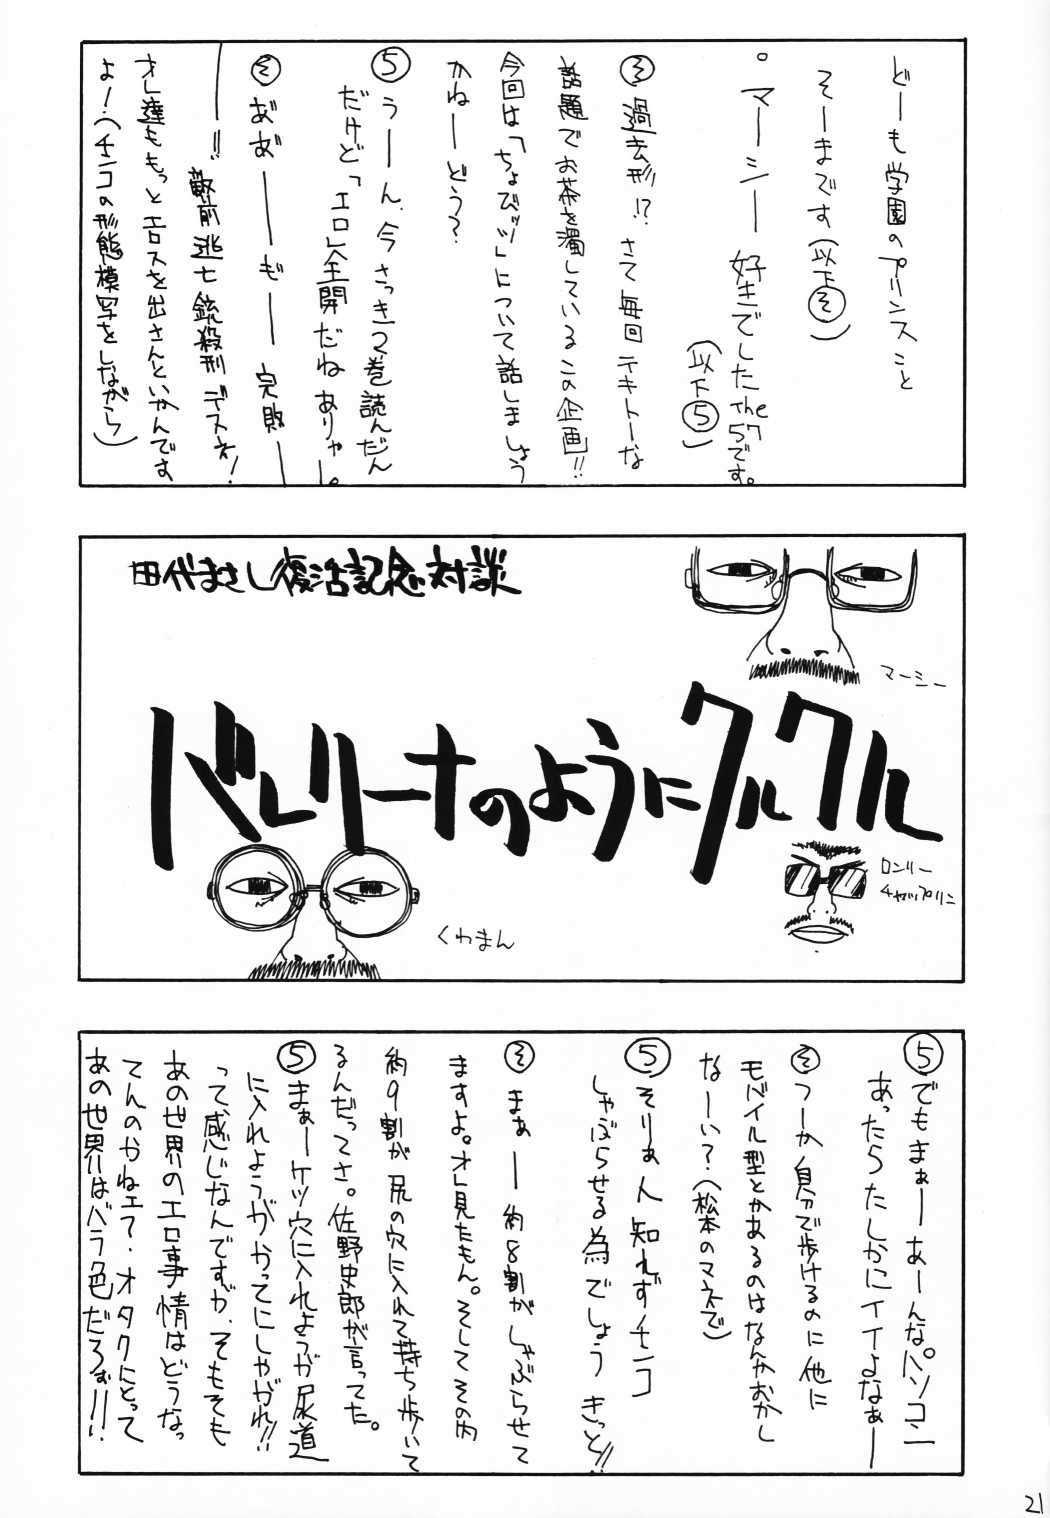 どーも学園のプリンスこと
そーまです(以下そ)
。マーシー好きでしたthe57です。
(以下5)
そ 過去形!?さて毎回テキトーな
話題でお茶を濁しているこの企画!!
今回は「ちょびッツ」について話しましょう
かねーどう?
5 うーん、今さっき2巻読んだん
だけど「エロ」全開だねありゃー。
そ あ゛あ゛ーーぎーー完敗ー
ー!!敵前逃亡銃殺刑デスネ!
オレ達ももっとエロスを出さんといかんです
よ!(チンコの形態模写をしながら)
田代まさし復活記念対談
マーシー
バレリーナのようにクルクル
ロンリー
チャップリン
くわまん
5 でもまぁーあーんなパソコン
あったらたしかにイイよなぁー
そ つーか自分で歩けるのに他に
モバイル型とかあるのはなんかおかし
なーい?(松本のマネで)
5 そりぁ人知れずチンコ
しゃぶらせる為でしょうきっと!!
そ まぁー約8割がしゃぶらせて
ますよ。オレ見たもん。そしてその内
約9割が尻の穴に入れて持ち歩いて
るんだってさ。佐野史郎が言ってた。
5 まぁーケツ穴に入れようが尿道
に入れようがかってにしやがれ!!
って感じなんですが、そもそも
あの世界のエロ事情はどうなっ
てんのかねェ?・オタクにとって
あの世界はバラ色だろぉ!!!
21